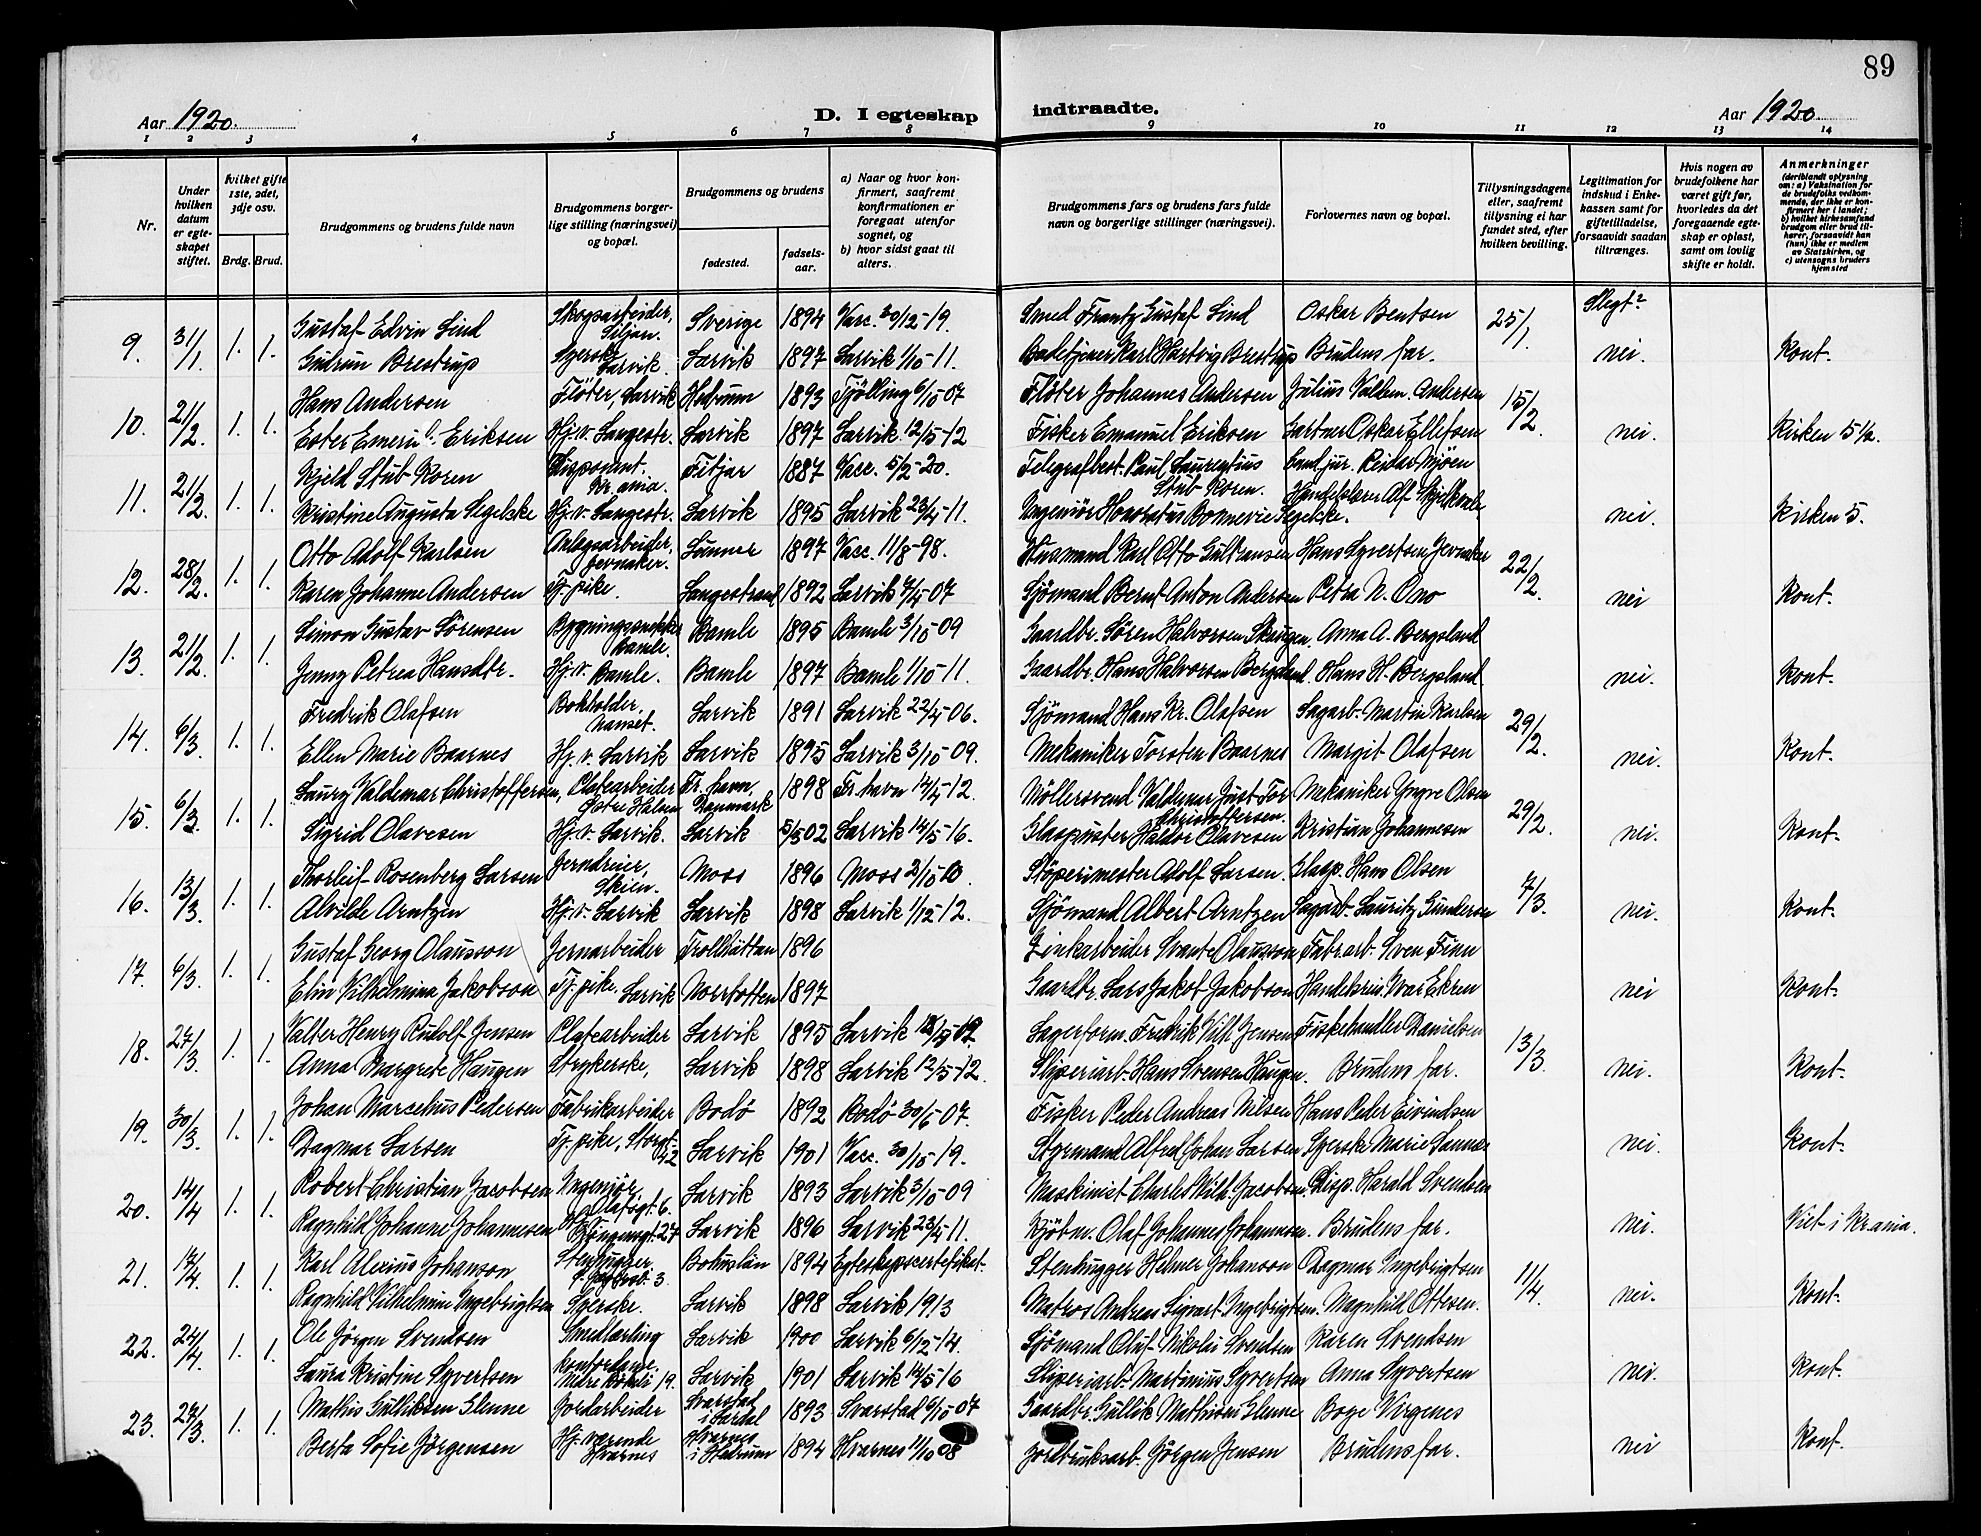 89
Aar 1920. D. I egteskap indtraadte. Aar 1920.
1 2 3 4 5 6 7 8 9 10 11 12 13 14
Nr.
Under hvilken datum er egte-skapet stiftet.
Hvilket gifte 1ste, 2det, 3dje osv.
Brdg. Brud.
Brudgommens og brudens fulde navn
Brudgommens borger-lige stilling (næringsvei) og bopæl.
Brudgommens og brudens
fødested.
fødsels-aar.
a) Naar og hvor kon-firmert, saafremt konfirmationen er foregaat utenfor sognet, og
b) hvor sidst gaat til alters.
Brudgommens fars og brudens fars fulde navn og borgerlige stillinger (næringsvei).
Forlovernes navn og bopæl.
Tillysningsdagene eller, saafremt tillysning ei har fundet sted, efter hvilken bevilling.
Legitimation for indskud i Enke-kassen samt for giftetilladelse, forsaavidt saadan tiltrænges.
Hvis nogen av brudefolkene har været gift før, hvorledes da det foregaaende egte-skap er opløst, samt om lovlig skifte er holdt.
Anmerkninger (deriblandt oplysning om: a) Vaksination for de brudefolks vedkom-mende, der ikke er kon-firmert her i landet; b) hvilket kirkesamfund brudgom eller brud til-hører, forsaavidt han (hun) ikke er medlem av Statskirken, og c) utensogns bruders hjemsted
Slegt?
9. 31/1 1. 1. Gustaf Edvin Lind Skogsarbeider, Siljan. Sverige 1894 Vacc. 30/12-19. Smed Frantz Gustaf Lind Oskar Bentsen 25/1.
Gudrun Brestrup Syerske Larvik. Larvik 1897 Larvik 1/10-11. Badetjener Karl Hartvig Brestrup Brudens far. nei. Kont.
10. 21/2. 1. 1. Hans Andersen Fløter, Larvik Hedrum 1893 Tjølling 6/10-07 Fløter Johannes Andersen Julius Valdem. Andersen 15/2.
Ester Emerii Eriksen Hj.v. Langestr. Larvik 1897 Larvik 12/5-12 Fisker Emanuel Eriksen Gartner Oskar Ellefsen nei. Kirken 5½.
11. 21/2. 1. 1. Kjeld Stub Koren Disponent. Kr.ania. Fitjar 1887 Vacc. 5/2-20. Telegrafbest. Paul Lauregtius Stub Koren. Cand. jur. Reidar Mjøen
Kristine Augusta Segelcke Hj.v. Langestr. Larvik 1895 Larvik 23/4-11. Ingeniør Honoratus Bonnevie Segelcke. nei. Kirken 5.
12. 28/2. 1. 1. Otto Adolf Karlsen Anlegsarbeider, Jevnaker. Lunner 1897 Vacc. 11/8-98. Husmand Karl Otto Gulbransen Hans Syvertsen Jevnaker 22/2.
Karen Johanne Andersen Tj. pike. Langestrand 1892 Larvik 7/4-07 Sjømand Bernt Anton Andersen Petra N. Ono nei Kont.
13. 21/2. 1. 1. Simon Gustav Sørensen Bygningssnekker Bamle. Bamle 1895 Bamle 3/10-09 Gaardbr. Søren Halvorsen Skaugen. Anna A. Bergsland
Jenny Petrea Hansdtr. Hj.v. Bamle. Bamle 1897 Bamle 1/10-11. Gaardbr. Hans Halvorsen Bergsland. Hans H. Bergsland nei. Kont.
14. 6/3 1. 1. Fredrik Olafsen Bokholder, Nanset. Larvik 1891 Larvik 22/4-06. Sjømand Hans Kr. Olafsen Sagarb. Martin Karlsen 29/2.
Ellen Marie Baarnes Hj.v. Larvik Larvik 1895 Larvik 3/10-09. Mekaniker Torsten Baarnes Margit Olafsen nei. Kont.
15. 6/3 1. 1. Laury Valdemar Christoffersen, Platearbeider Østre Halsen Fr. havn, Danmark 1898 Fr.havn 14/4-12. Møllersvend Valdemar Just Tor Christoffersen. Mekaniker Yngve Olsen 29/2.
Sigrid Olavesen Hj.v. Larvik. Larvik 5/5 02 Larvik 14/5-16. Glaspuster Haldor Olavesen Kristian Johannesen nei. Kont.
16. 13/3. 1. 1. Thorleif Rosenberg Larsen Jerndreier, Skien. Moss 1896 Moss 2/10-10. Støperimester Adolf Larsen. Glasp. Hans Olsen 7/3.
Alvilde Arntzen Hj.v. Larvik Larvik 1898 Larvik 1/12-12. Sjømand Albert Arntzen Sagarb. Lauritz Gundersen nei. Kont.
17. 6/3 1. 1. Gustaf Georg Olausson Jernarbeider Trollhättan 1896 Zinkarbeider Svante Olausson Fabr.arb. Sven Finn
Elin Vilhelmina Jakobson Tj. pike. Larvik 1897 Gaardbr. Lars Jakob Jakobson Handelsreis. Ivar Ekren nei Kont.
18. 27/3. 1. 1. Valter Henry Rudolf Jensen Platearbeider Larvik 1895 Larvik Lagerform. Fredrik Vilh. Jensen Fiskehandler Danielsen 13/3.
Anna Margrete Haugen Strykerske, Larvik 1898 Larvik 12/5-12. Sliperiarb. Hans Svensen Haugen. Brudens far. nei. Kont.
19. 30/3. 1. 1. Johan Marcelius Pedersen Fabrikarbeider Bodø 1892 Bodø 30/6-07. Fisker Peder Andreas Nilsen Hans Peder Eivindsen
Dagmar Larsen Tj. pike, Storgt. 42 Larvik 1901 Vacc. 30/10-19. Styrmand Alfred Johan Larsen Syerske Marie Sannes nei. Kont.
20. 14/4 1. 1. Robert Christian Jacobsen Ingeniør Olafsgt. 6. Larvik 1893 Larvik 3/10-09 Maskinist Charles Wilh. Jacobsen Disp. Harald Svendsen
Ragnhild Johanne Johannesen Kongensgt. 27 Larvik 1896 Larvik 23/4-11. Kjøbm. Olaf Johannes Johannesen. Brudens far. nei. Viet i Kr.ania.
21. 17/4. 1. 1. Karl Alexius Johanson Stenhugger, 3. Bohuslän 1894 Egteskapscertifikat. Stenhugger Helmer Johanson Dagmar Ingebrigtsen 11/4.
Ragnhild Vilhelmine Ingebrigtsen Syerske. Larvik 1898 Larvik 1913 Matros Andreas Sigvart Ingebrigtsen. Magnhild Ottesen. nei. Kont.
22. 24/4. 1. 1. Ole Jørgen Svendsen Smedlærling Larvik 1900 Larvik 6/12-14. Sjømand Oluf Nikolai Svendsen Karen Svendsen
Laura Kristine Syvertsen Kontordame. 19. Larvik 1901 Larvik 14/5-16 Sliperiarb. Martinius Syvertsen Anna Syvertsen nei. Kont.
23. 27/3. 1. 1. Mathis Gulliksen Glenne Jordarbeider Svarstad i Lardal 1893 Svarstad 6/10-07 Gaardbr. Gullik Mathisen Glenne Boye Virgenes
Berta Sofie Jørgensen Hj. værende Hvarnes Hvarnes i Hedrum 1894 Hvarnes 11/10 08 Jordbruksarb. Jørgen Jensen Brudens far. nei Kont.